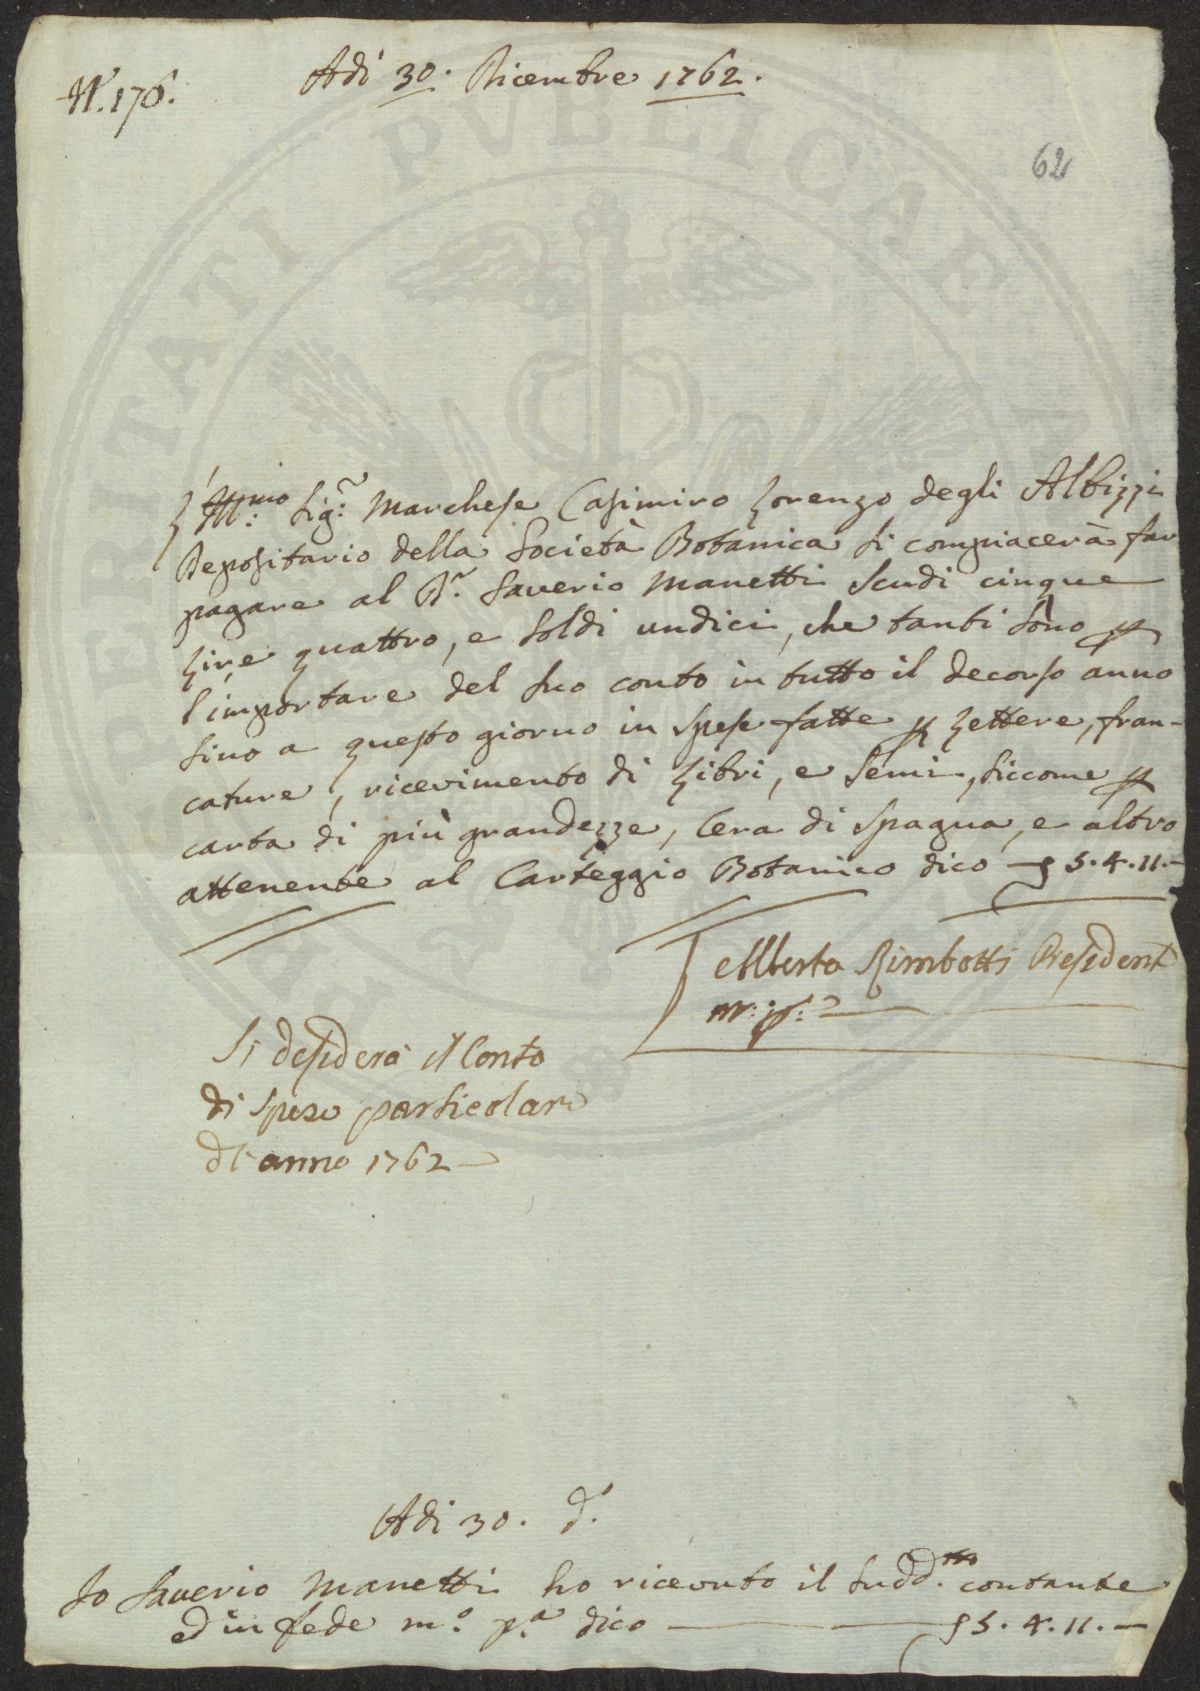 Adì 30. Dicembre 1762.
N. 176.
62
L'Ill:mo Sig:r Marchese Casimiro Lorenzo degli Albizzi
Depositario della Società Botanica si compiacerà far
pagare al D.r Saverio Manetti Scudi cinque
Lire quattro, e soldi undici, che tanti sono p
l'importare del suo conto in tutto il decorso anno
sino a questo giorno in spese fatte p Lettere, fran-
cature, ricevimento di Libri, e Semi, siccome p
carta di più grandezze, Cera di Spagna, e altro
attenente al Carteggio Botanico dico — 5.4.11.—
Alberto Rimbotti President
m: p:
Si desidera il Conto
di spese particolari
dl anno 1762 —
Adì 30. d.o
Io Saverio Manetti ho ricevuto il sudd.tto contante
ed in fede m.o p.a dico — 5.4.11.—
PVBLICAE